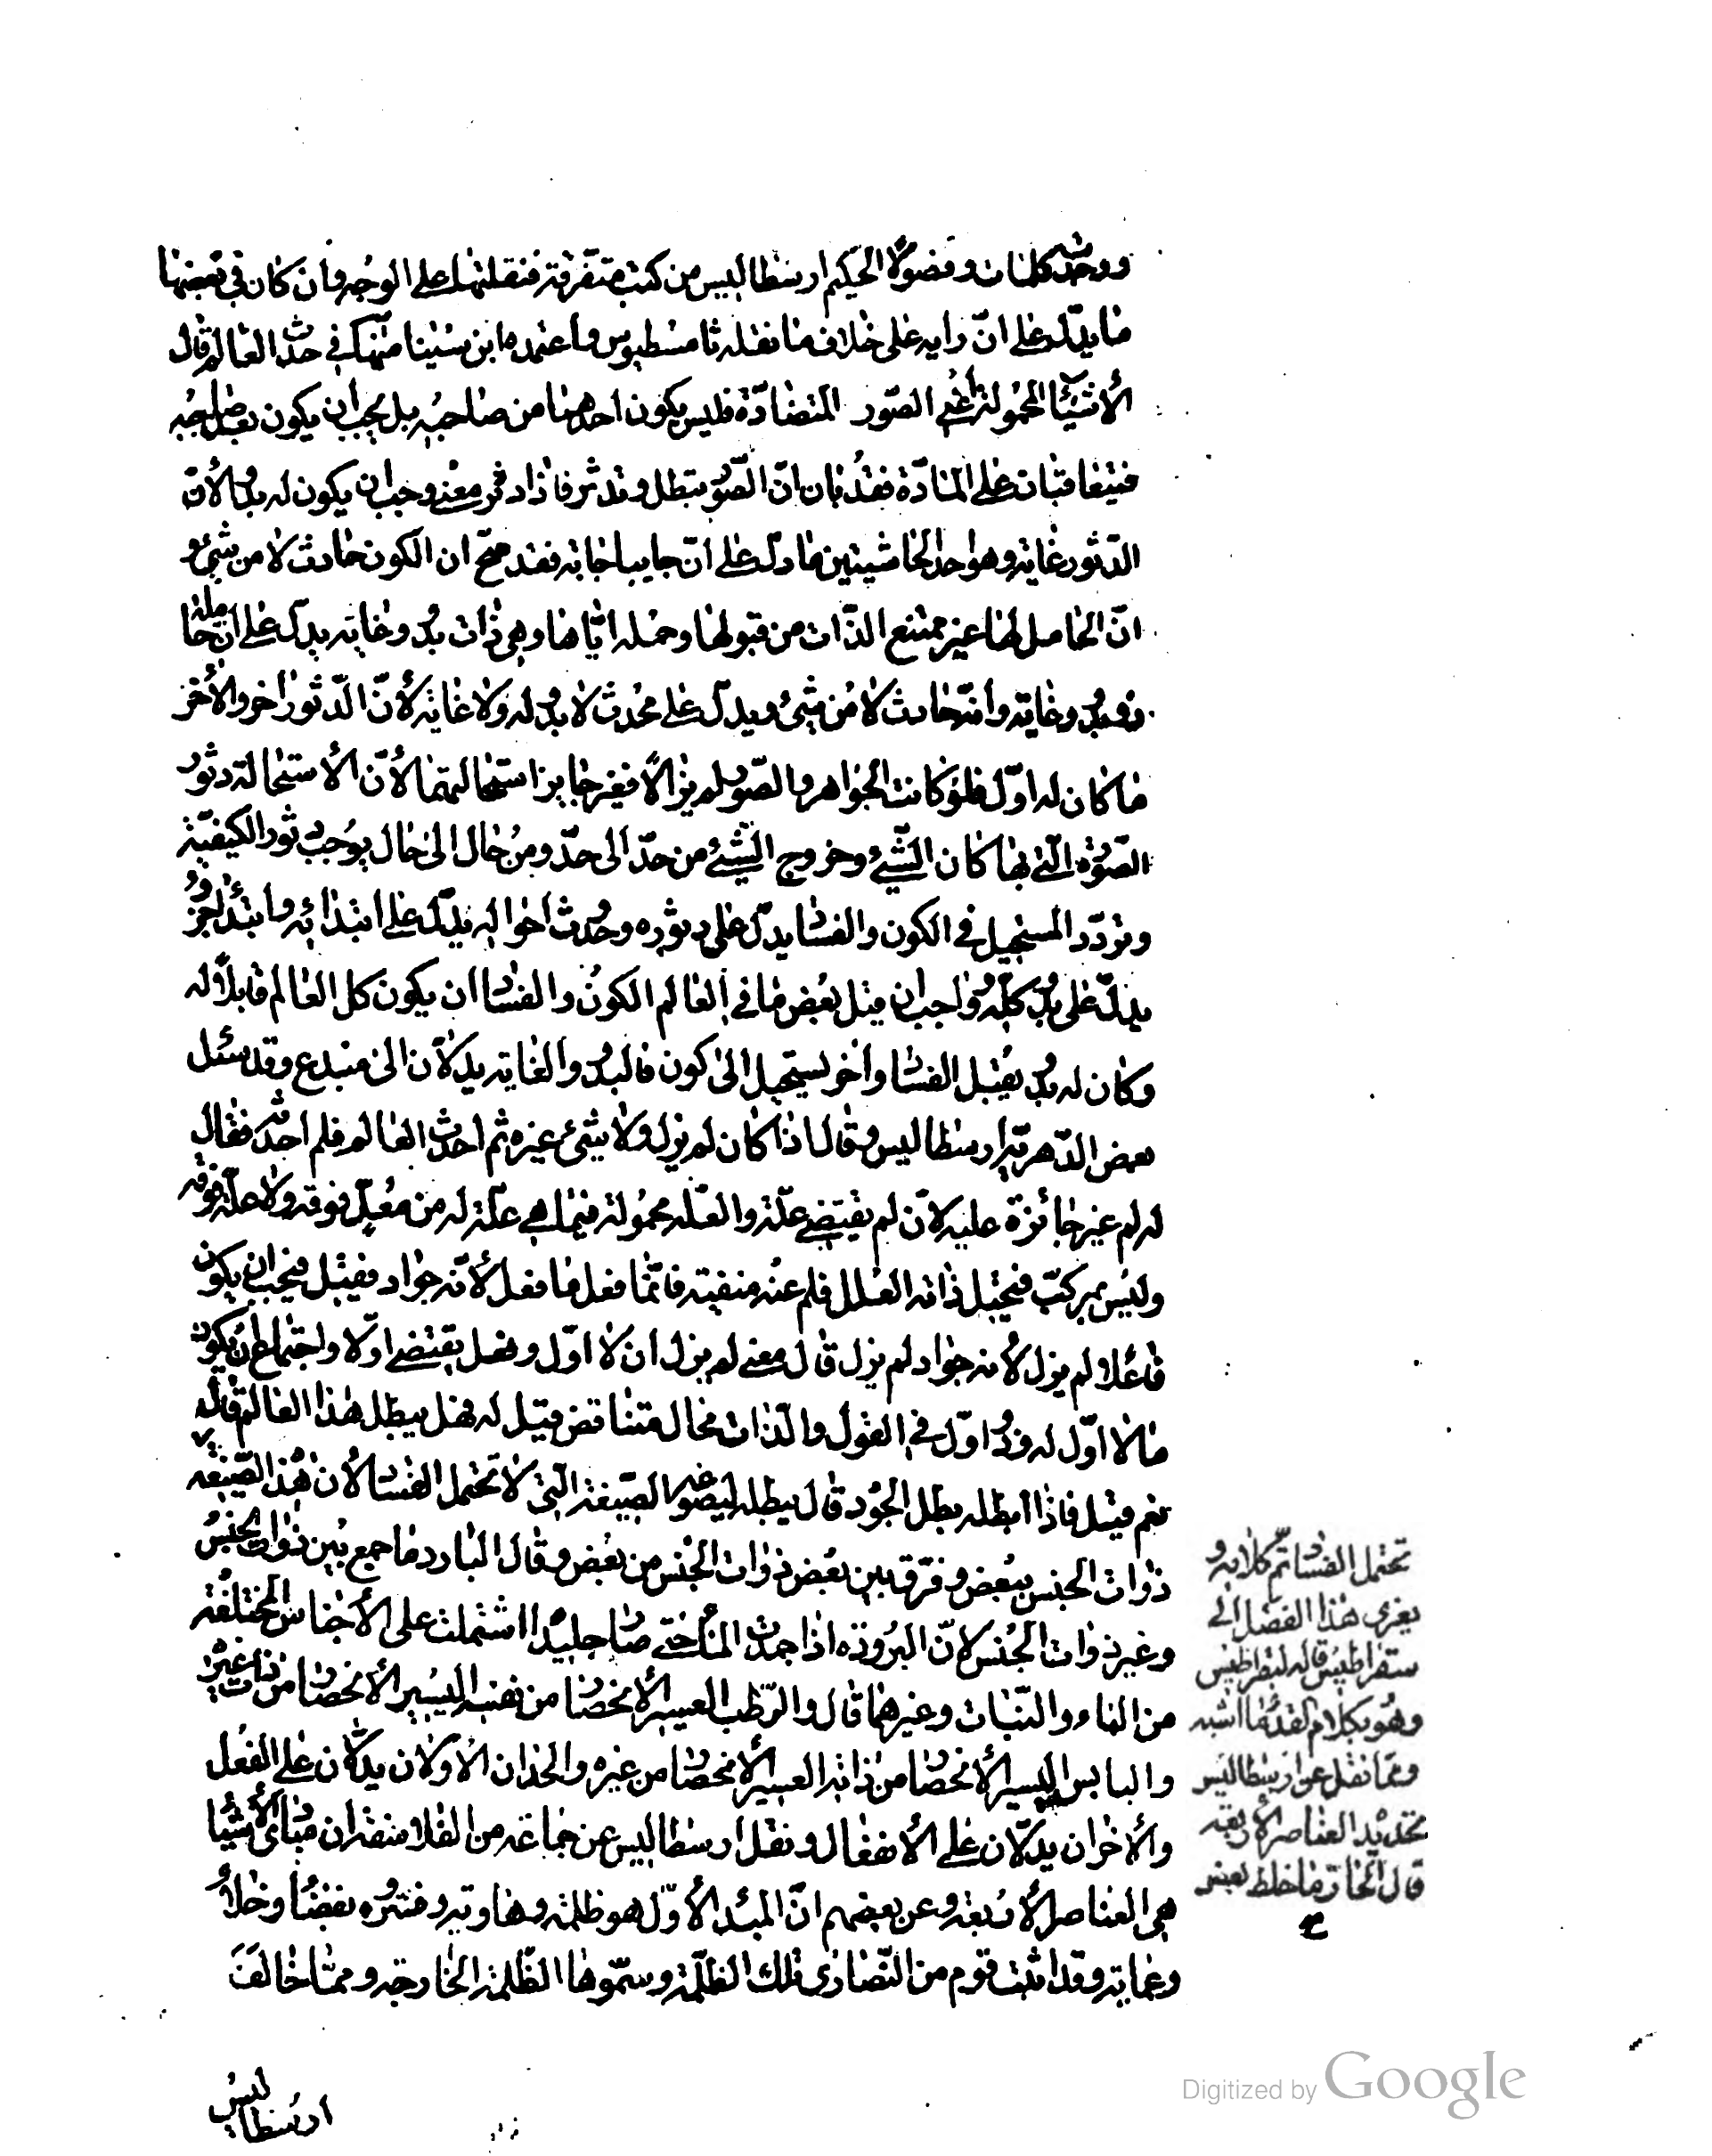 ووجدت كلمات وفصولا للحكيم ارسطاليس من كتب متفرقة فنقلتها على الوجه وان كان في بعضها
ما يدل على ان رايه على خلاف ما نقله ثامسطيوس واعتمده ابن سينا منها في حدث العالم قال
الأشياء المحمولة أعني الصور المتضادة فليس يكون احدهما من صاحبه بل يجب ان يكون بعد صاحبه
فيتعاقبان على المادة فقد بان ان الصور تبطل وتدثر فاذا دثر معنى وجب ان يكون له بدء لأن
الدثور غاية وهو احد الحاشيتين ما دل على ان جايبا جابه فقد صح ان الكون حادث لا من شيء و
ان الحامل لها غير ممتنع الذات من قبولها وحمله اياها وهي ذات بدء وغاية يدل على ان حامله
ذو بدء وغاية وانه حادث لا من شيء ويدل على محدث لا بدء له ولا غاية لأن الدثور اخر والأخر
ما كان له اول فلو كانت الجواهر والصور لم يزالا فغير جايز استحالتهما لأن الأستحالة دثور
الصورة التي بها كان الشيء وخروج الشيء من حد الى حد ومن حال الى حال يوجب دثور الكيفية
وتردد المستحيل في الكون والفساد يدل على دثوره وحدوث احواله يدل على ابتدائه وابتداء جزؤه
يدل على بدء كله وواجب ان قبل بعض ما في العالم الكون والفساد ان يكون كل العالم قابلا له
وكان له بدء يقبل الفساد واخر يستحيل الى كون فالبدء والغاية يدلان الى مبدع وقد سئل
بعض الدهرية ارسطاليس وقال اذا كان لم يزل ولا شيء غيره ثم احدث العالم فلم احدثه فقال
له لم غير جائزة عليه لان لم يقتضي علة والعلة محمولة فيما هي علة له من معل فوقه ولا علة فوقه
وليس بمركب فيحتمل ذاته العلل فلم عنه منفية فانما فعل ما فعل لأنه جواد فقيل فيجب ان يكون
فاعلا لم يزل لأنه جواد لم يزل قال معنى لم يزل ان لا اول وفعل يقتضي اولا واجتماع ان يكون
ما لا اول له وذو اول في القول والذات محال متناقض قيل له فهل يبطل هذا العالم قال
نعم قيل فاذا ابطله بطل الجود قال يبطله ليصوغه الصيغة التي لا تحتمل الفساد لأن هذه الصيغة
ذوات الجنس ببعض وفرق بين بعض ذوات الجنس من بعض وقال البارد ما جمع بين ذوات الجنس
وغير ذوات الجنس لان البرودة اذا جمدت الماء حتى صار جليدا اشتملت على الأجناس المختلفة
من الماء والنبات وغيرهما قال والرطب العسير الأنحصار من نفسه اليسير الأنحصار من ذات غيره
واليابس اليسير الأنحصار من ذاته العسير الأنحصار من غيره والحدان الأولان يدلان على الفعل
والأخران يدلان على الأنفعال ونقل ارسطاليس عن جماعة من الفلاسفة ان مبادي الأشياء
هي العناصر الأربعة وعن بعضهم ان المبدأ الأول هو ظلمة وهاوية وفسره بفضاء وخلاء
وعماية وقد اثبت قوم من النصارى تلك الظلمة وسموها الظلمة الخارجة ومما خالف
ارسطاليس
تحتمل الفساد تم كلامه و
يعزى هذا الفصل الى
سقراطيس قاله لبقراطيس
وهو بكلام القدماء اشبه
ومما نقل عن ارسطاليس
تحديد العناصر الأربعة
قال الحار ما خلط بعض